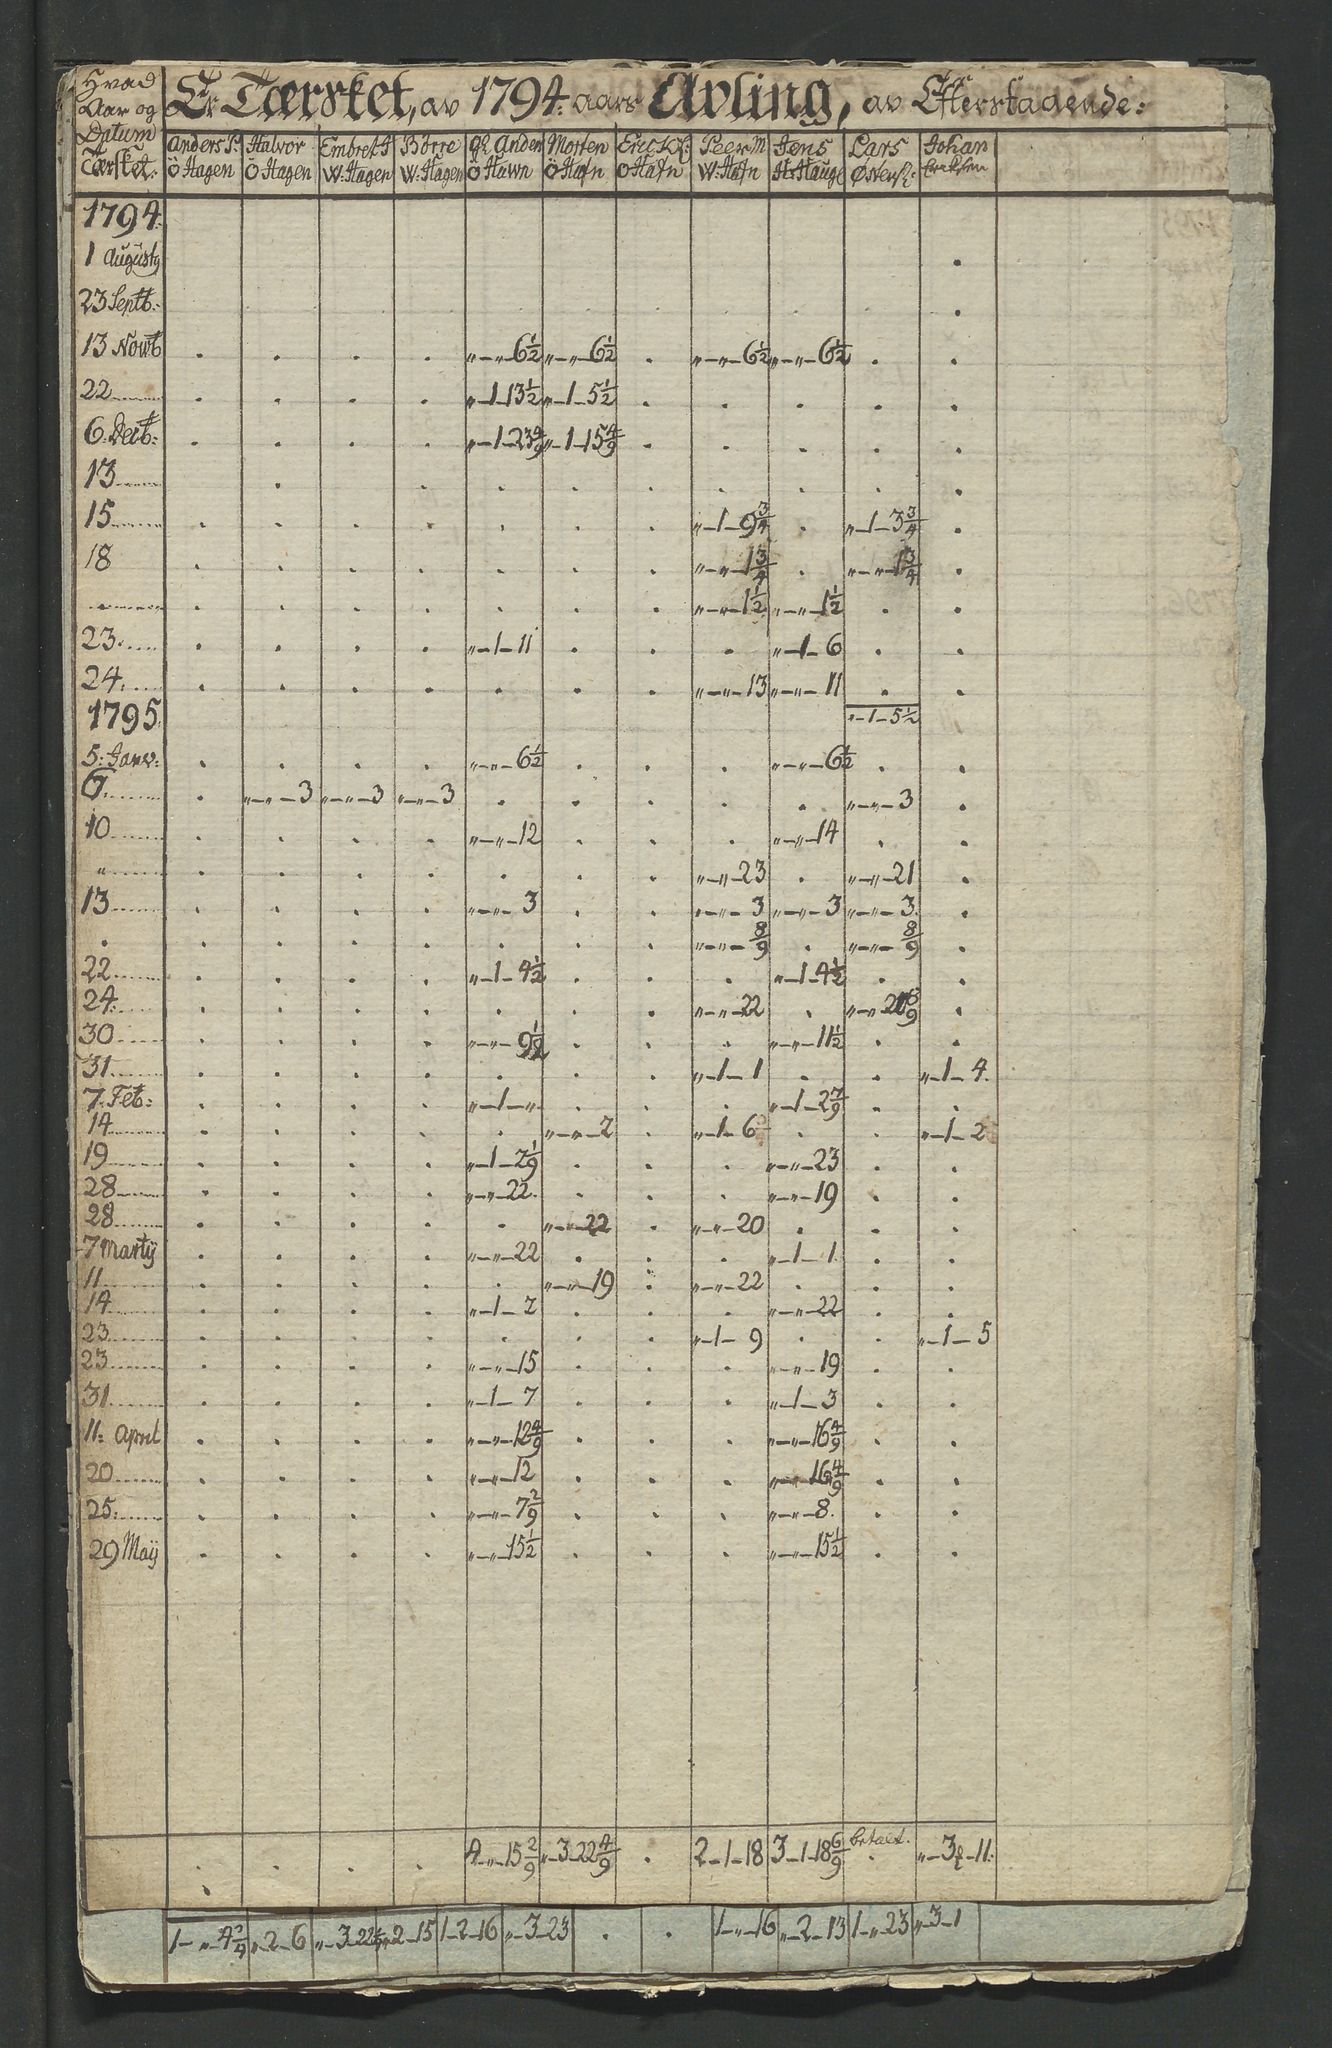 Hvad Aar og Datum Tærsket: Er Tærsket, av 1794: aars Avling, av Efterstaaende:
Anders P. Ö Hagen | Halvor Ö Hagen | Embret W: Hagen | Börre W: Hagen | gl. Anders Ö Hawn | Morten Ö Hafn | Erick O Hafn | Peer M W: Hafn | Jens Hauge | Lars Østens: | Johan Eriksen
1794.
1 Augusty . 
23 Septb: . 
13 Novb . . . . „-„-6½ „-„-6½ . „-„-6½ „-„-6½ . .
22 . . . . „-1-13½ „-1-5½ . . . . .
6. Decb: . . . . „-1-23 4/9 „-1-15 4/9 . . . . .
13 . . . . . . . . .
15 . . . . . . . „-1-9¾ . „-1-3¾ .
18 . . . . . . . „-„-1¾ . „-„-1¾ .
. . . . . . . . „-„-1½ „-„-1½ . .
23 . . . . „-1-11 . . . „-1-6 . .
24. . . . . . . . „-„-13 „-„-11 . .
1795. „-1-5½
5: Janv: . . . . „-„-6½ . . . „-„-6½ . .
7 . „-„-3 „-„-3 „-„-3 . . . . . „-„-3 .
10 . . . . „-„-12 . . . „-„-14 . .
„ . . . . . . . „-„-23 . „-„-21 .
13 . . . . „-„-3 . . „-„-3 „-„-3 „-„-3. .
. . . . . . . . „-„-8/9 . „-„-8/9 .
22 . . . . „-1-4½ . . . „-1-4½ . .
24: . . . . . . . „-„-22 . „-„- .
30 . . . . „-„-9½ . . . „-„-11½ . .
31 . . . . . . . „-1-1 . . „-1-4.
7. Feb: . . . . „-1-„ . . . „-1-2 7/9 . .
14 . . . . . „-„-2 . „-1-6 . . „-1-2
19 . . . . „-1-2 1/9 . . . „-„-23 . .
28 . . . . „-„-22. . . . „-„-19 . .
28 . . . . . „-„-22 . „-„-20 . . .
7 Martij . . . . „-„-22 . . . „-1-1 . .
11 . . . . . „-„-19 . „-„-22 . . .
14 . . . . „-1-2 . . . „-„-22 . .
23 . . . . . . . „-1-9 . . „-1-5
23 . . . . „-„-15 . . . „-„-19 . .
31 . . . . „-1-7 . . . „-1-3 . .
11: April . . . . „-„-12 4/9 . . . „-„-16 4/9 . .
20 . . . . „-„-12 . . . „-„-16 4/9 . .
25: . . . . „-„-7 2/9 . . . „-„-8. . .
29 Maij . . . . „-„-15½ . . . „-„-15½ . .
. . . . 4-„-15 2/9 „-3-22 4/9 . 2-1-18 3-1-18 6/9 betalt. „-3-11:
1-„-4 „-2-6 „-3-22 „-2-15 1-2-16 „-3-23 . . 1-„-16 „-2-13 1-„-23 „-3-1